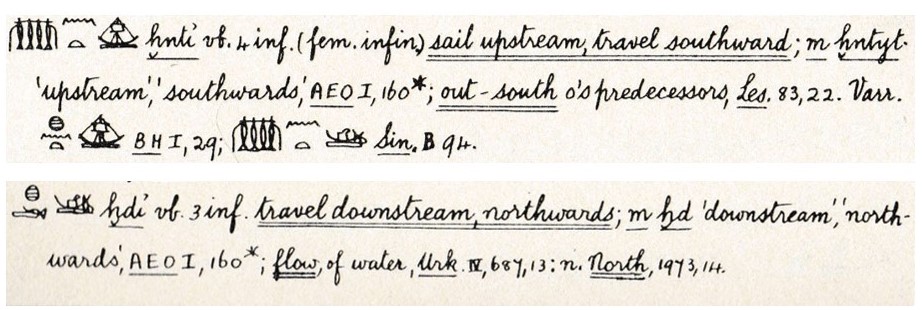 𓏃𓈖𓏏𓊞 ḫnti vb. 4 inf. (fem. infin.) sail upstream, travel southward; m ḫntyt
'upstream', 'southwards', AEO I, 160*; out-south o's predecessors, Les. 83, 22. Varr.
𓐍𓈖𓏏𓊞 BH I, 29; 𓏃𓈖𓏏𓊛 Sin. B 94.
𓐍𓂧𓊛 ḫdi vb. 3 inf. travel downstream, northwards; m ḫd 'downstream', 'north-
wards', AEO I, 160*; flow, of water, Urk. IV, 687, 13: n. North, 1973, 14.